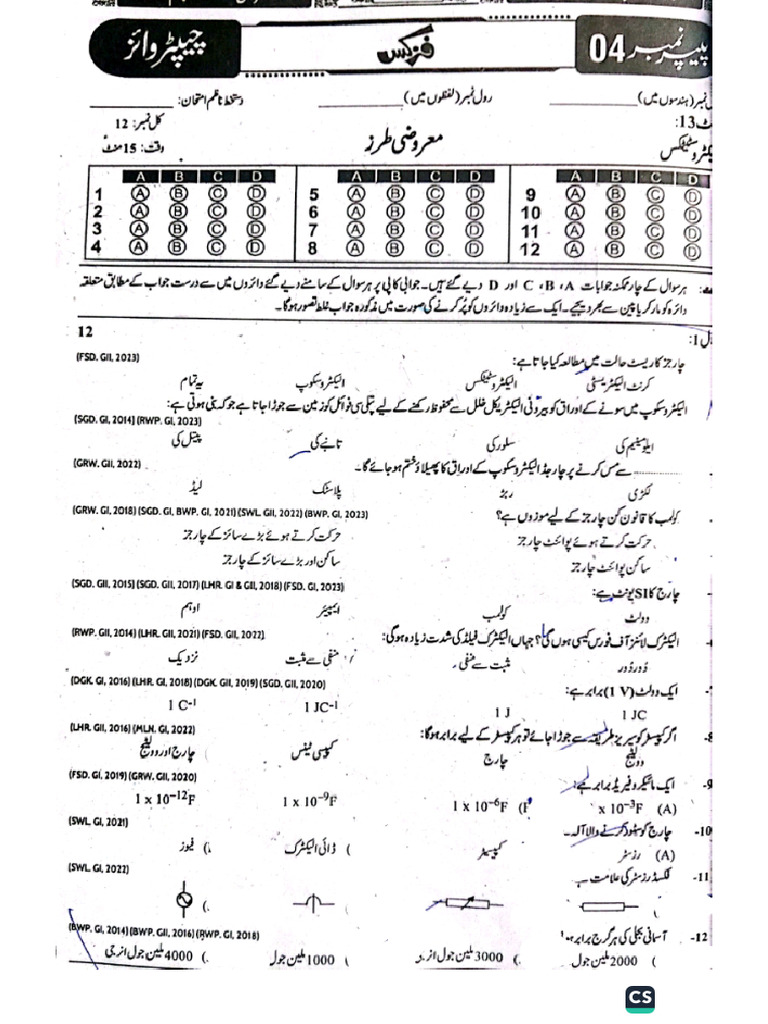 پیپر نمبر 04
فزکس
چیپٹر وائز
نمبر (ہندسوں میں) رول نمبر (لفظوں میں) دستخط ناظم امتحان:
13: کل نمبر: 12
معروضی طرز وقت: 15 منٹ
A B C D A B C D A B C D
1 A B C D 5 A B C D 9 A B C D
2 A B C D 6 A B C D 10 A B C D
3 A B C D 7 A B C D 11 A B C D
4 A B C D 8 A B C D 12 A B C D
ہر سوال کے چار ممکنہ جوابات A، B، C اور D دیے گئے ہیں۔ جوابی کاپی پر ہر سوال کے سامنے دیے گئے دائروں میں سے درست جواب کے مطابق متعلقہ
دائرہ کو مارکر یا پین سے بھر دیجیے۔ ایک سے زیادہ دائروں کو پُر کرنے کی صورت میں مذکورہ جواب غلط تصور ہوگا۔
12
چارجز کا ریسٹ حالت میں مطالعہ کیا جاتا ہے:
(FSD. GII, 2023)
کرنٹ الیکٹریسٹی الیکٹروسٹیٹکس الیکٹروسکوپ یہ تمام
الیکٹروسکوپ میں سونے کے اوراق کو بیرونی الیکٹریکل خلل سے محفوظ رکھنے کے لیے پتلی سی فوائل کو زمین سے جوڑا جاتا ہے جو کہ بنی ہوتی ہے:
(SGD. GII, 2014) (RWP. GI, 2023)
ایلومینیم کی سلور کی تانبے کی پیتل کی
سے مس کرنے پر چارجڈ الیکٹروسکوپ کے اوراق کا پھیلاؤ ختم ہو جائے گا۔
(GRW. GII, 2022)
لکڑی ربڑ پلاسٹک لیڈ
کولمب کا قانون کن چارجز کے لیے موزوں ہے؟ (GRW. GI, 2018) (SGD. GI, BWP. GI, 2021) (SWL. GII, 2022) (BWP. GI, 2023)
حرکت کرتے ہوئے پوائنٹ چارجز حرکت کرتے ہوئے بڑے سائز کے چارجز
ساکن پوائنٹ چارجز ساکن اور بڑے سائز کے چارجز
چارج کا SI یونٹ ہے: (SGD. GII, 2015) (SGD. GII, 2017) (LHR. GI & GII, 2018) (FSD. GI, 2023)
وولٹ کولمب ایمپیئر اوہم
الیکٹرک لائنز آف فورس کیسی ہوں گی؟ جہاں الیکٹرک فیلڈ کی شدت زیادہ ہوگی: (RWP. GII, 2014) (LHR. GII, 2021) (FSD. GII, 2022)
دُور دُور مثبت سے منفی منفی سے مثبت نزدیک
ایک وولٹ (1 V) برابر ہے: (DGK. GI, 2016) (LHR. GI, 2018) (DGK. GII, 2019) (SGD. GII, 2020)
1 JC 1 J 1 JC⁻¹ 1 C⁻¹
8- اگر کپیسٹر کو سیریز طریقہ سے جوڑا جائے تو ہر کپیسٹر کے لیے برابر ہوگا: (LHR. GII, 2016) (MLN. GI, 2022)
وولٹیج چارج کپیسی ٹینس چارج اور وولٹیج
9- ایک مائیکرو فیریڈ برابر ہے: (FSD. GI, 2019) (GRW. GII, 2020)
(A) x 10⁻³F 1 x 10⁻⁶F 1 x 10⁻⁹F 1 x 10⁻¹²F
10- چارج کو سٹور کرنے والا آلہ (SWL. GI, 2021)
(A) رزسٹر کپیسٹر ڈائی الیکٹرک فیوز
11- فکسڈ رزسٹر کی علامت ہے (SWL. GI, 2022)
12- آسمانی بجلی کی ہر گرج برابر (BWP. GI, 2014) (BWP. GII, 2016) (RWP. GI, 2018)
2000 ملین جول 3000 ملین جول 1000 ملین جول 4000 ملین جول انرجی
CS